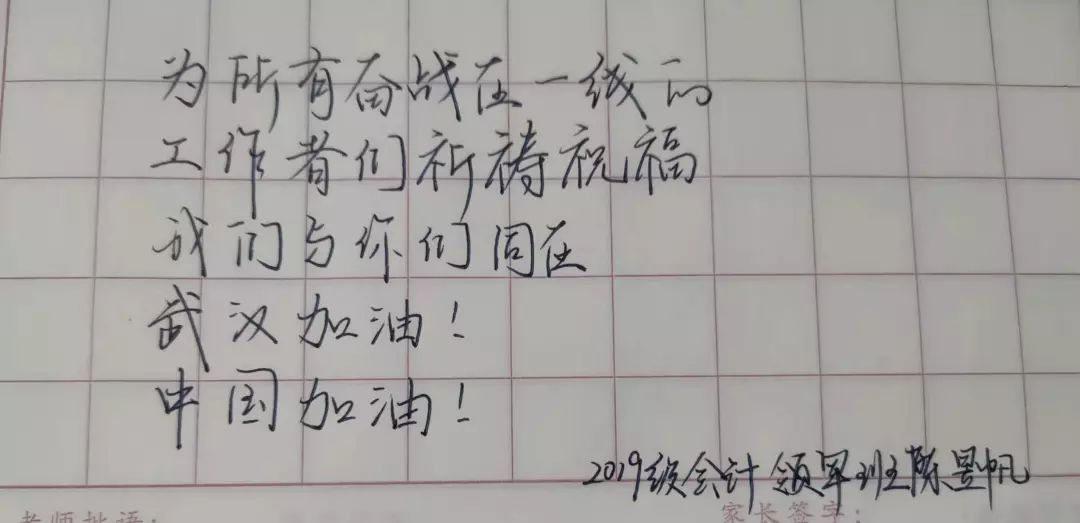 为所有奋战在一线的
工作者们祈祷祝福
我们与你们同在
武汉加油！
中国加油！
2019级会计领军班陈昱帆
老师批语：
家长签字：